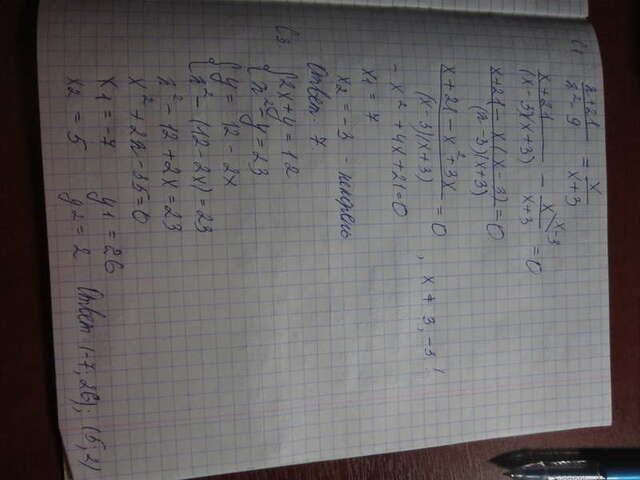 C1
(x+21)/(x²-9) = x/(x+3)
(x+21)/((x-3)(x+3)) - x\x-3/(x+3) = 0
(x+21-x(x-3))/((x-3)(x+3)) = 0
(x+21-x²+3x)/((x-3)(x+3)) = 0, x ≠ 3, -3
-x²+4x+21=0
x1 = 7
x2 = -3 -
Ответ: 7.
C3 { 2x+y=12
{ x²-y=23
{ y = 12-2x
{ x²-(12-2x)=23
x²-12+2x=23
x²+2x-35=0
x1=-7 y1=26
x2=5 y2=2 Ответ (-7; 26); (5; 2)